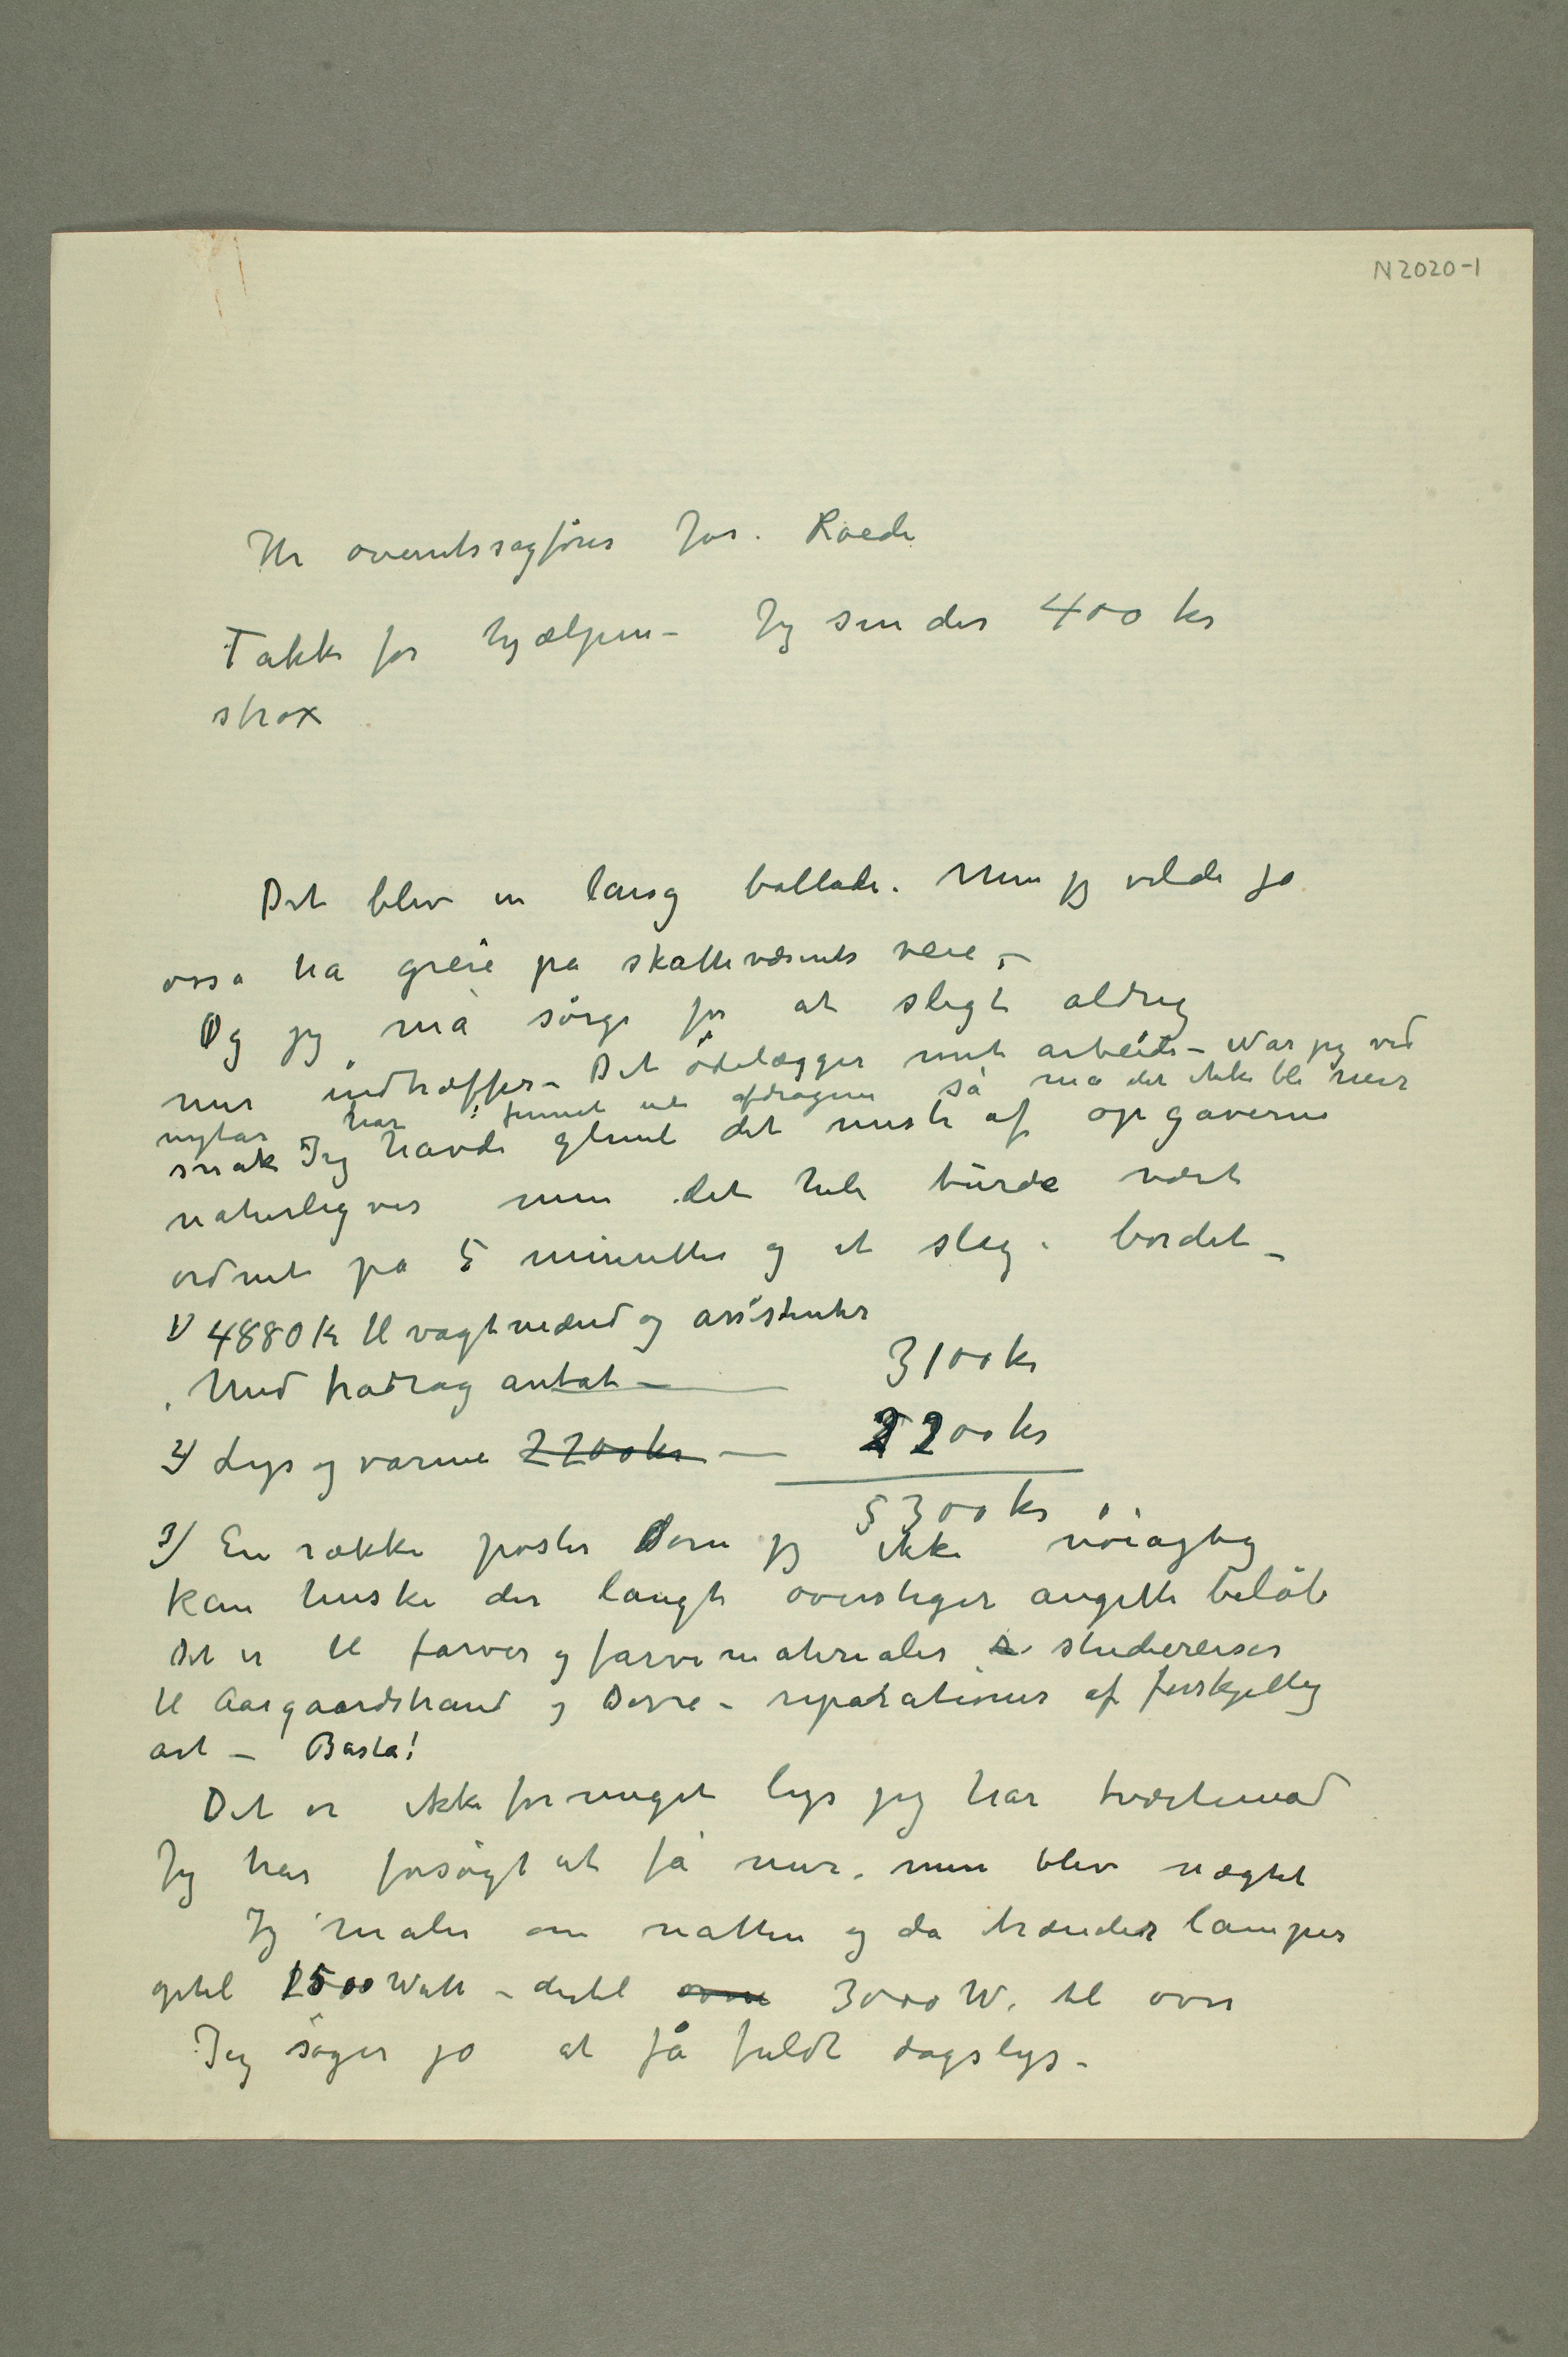 N 2020-1
Hr overretssagfører Joh. Roede
Takk for hjælpen – Jeg sender 400 kr
strax
Det blev en lang ballade. Men jeg vilde jo
osså ha greie på skattevæsnets veie, –
Og jeg må sørge for at sligt aldrig
mer indtræffer – Det ødelægger mit arbeide – Når jeg ved
nytår har funnet ut afdragene så må det ikke bli mer
snak Jeg havde glemt det meste af opgaverne
naturligvis men det hele burde vært
ordnet på 5 minutter og et slag i bordet –
1) 4880 kr til vagtmænd og assistenter
Med fradrag antat – 3100 kr
2) Lys og varme 2200 kr – 2200 kr
5300 kr
3) En række poster som jeg ikke nøiagtig
kan huske der langt overstiger angitte beløb
Det er til farver og farvematerialer studiereiser
til Aasgaardstrand og Dovre – reparationer af forskjellig
art – Basta!
Det er ikke for meget lys jeg har tværtimod
Jeg har forsøgt at få mer. men blev nægtet
Jeg maler om natten og da brænder lamper
optil 1500 Watt – dertil ovne 3000 W. til ovn
Jeg søger jo at få fuldt dagslys –